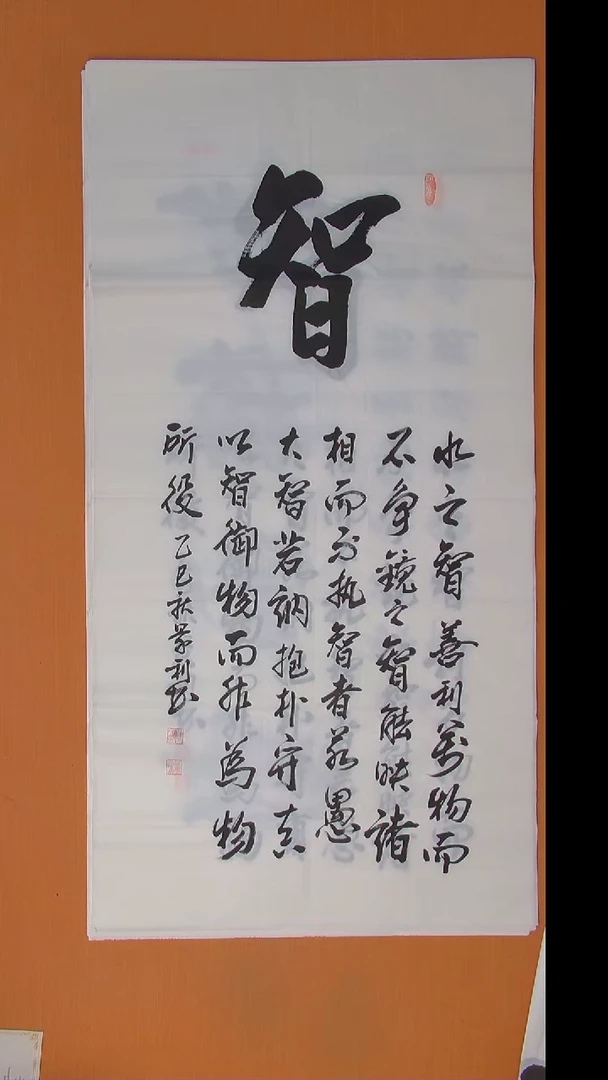 智
水之智善利萬物而
不争鏡之智能映諸
相而不执智者若愚
大智若訥抱朴守真
以智御物而非為物
所役 乙巳秋景利书